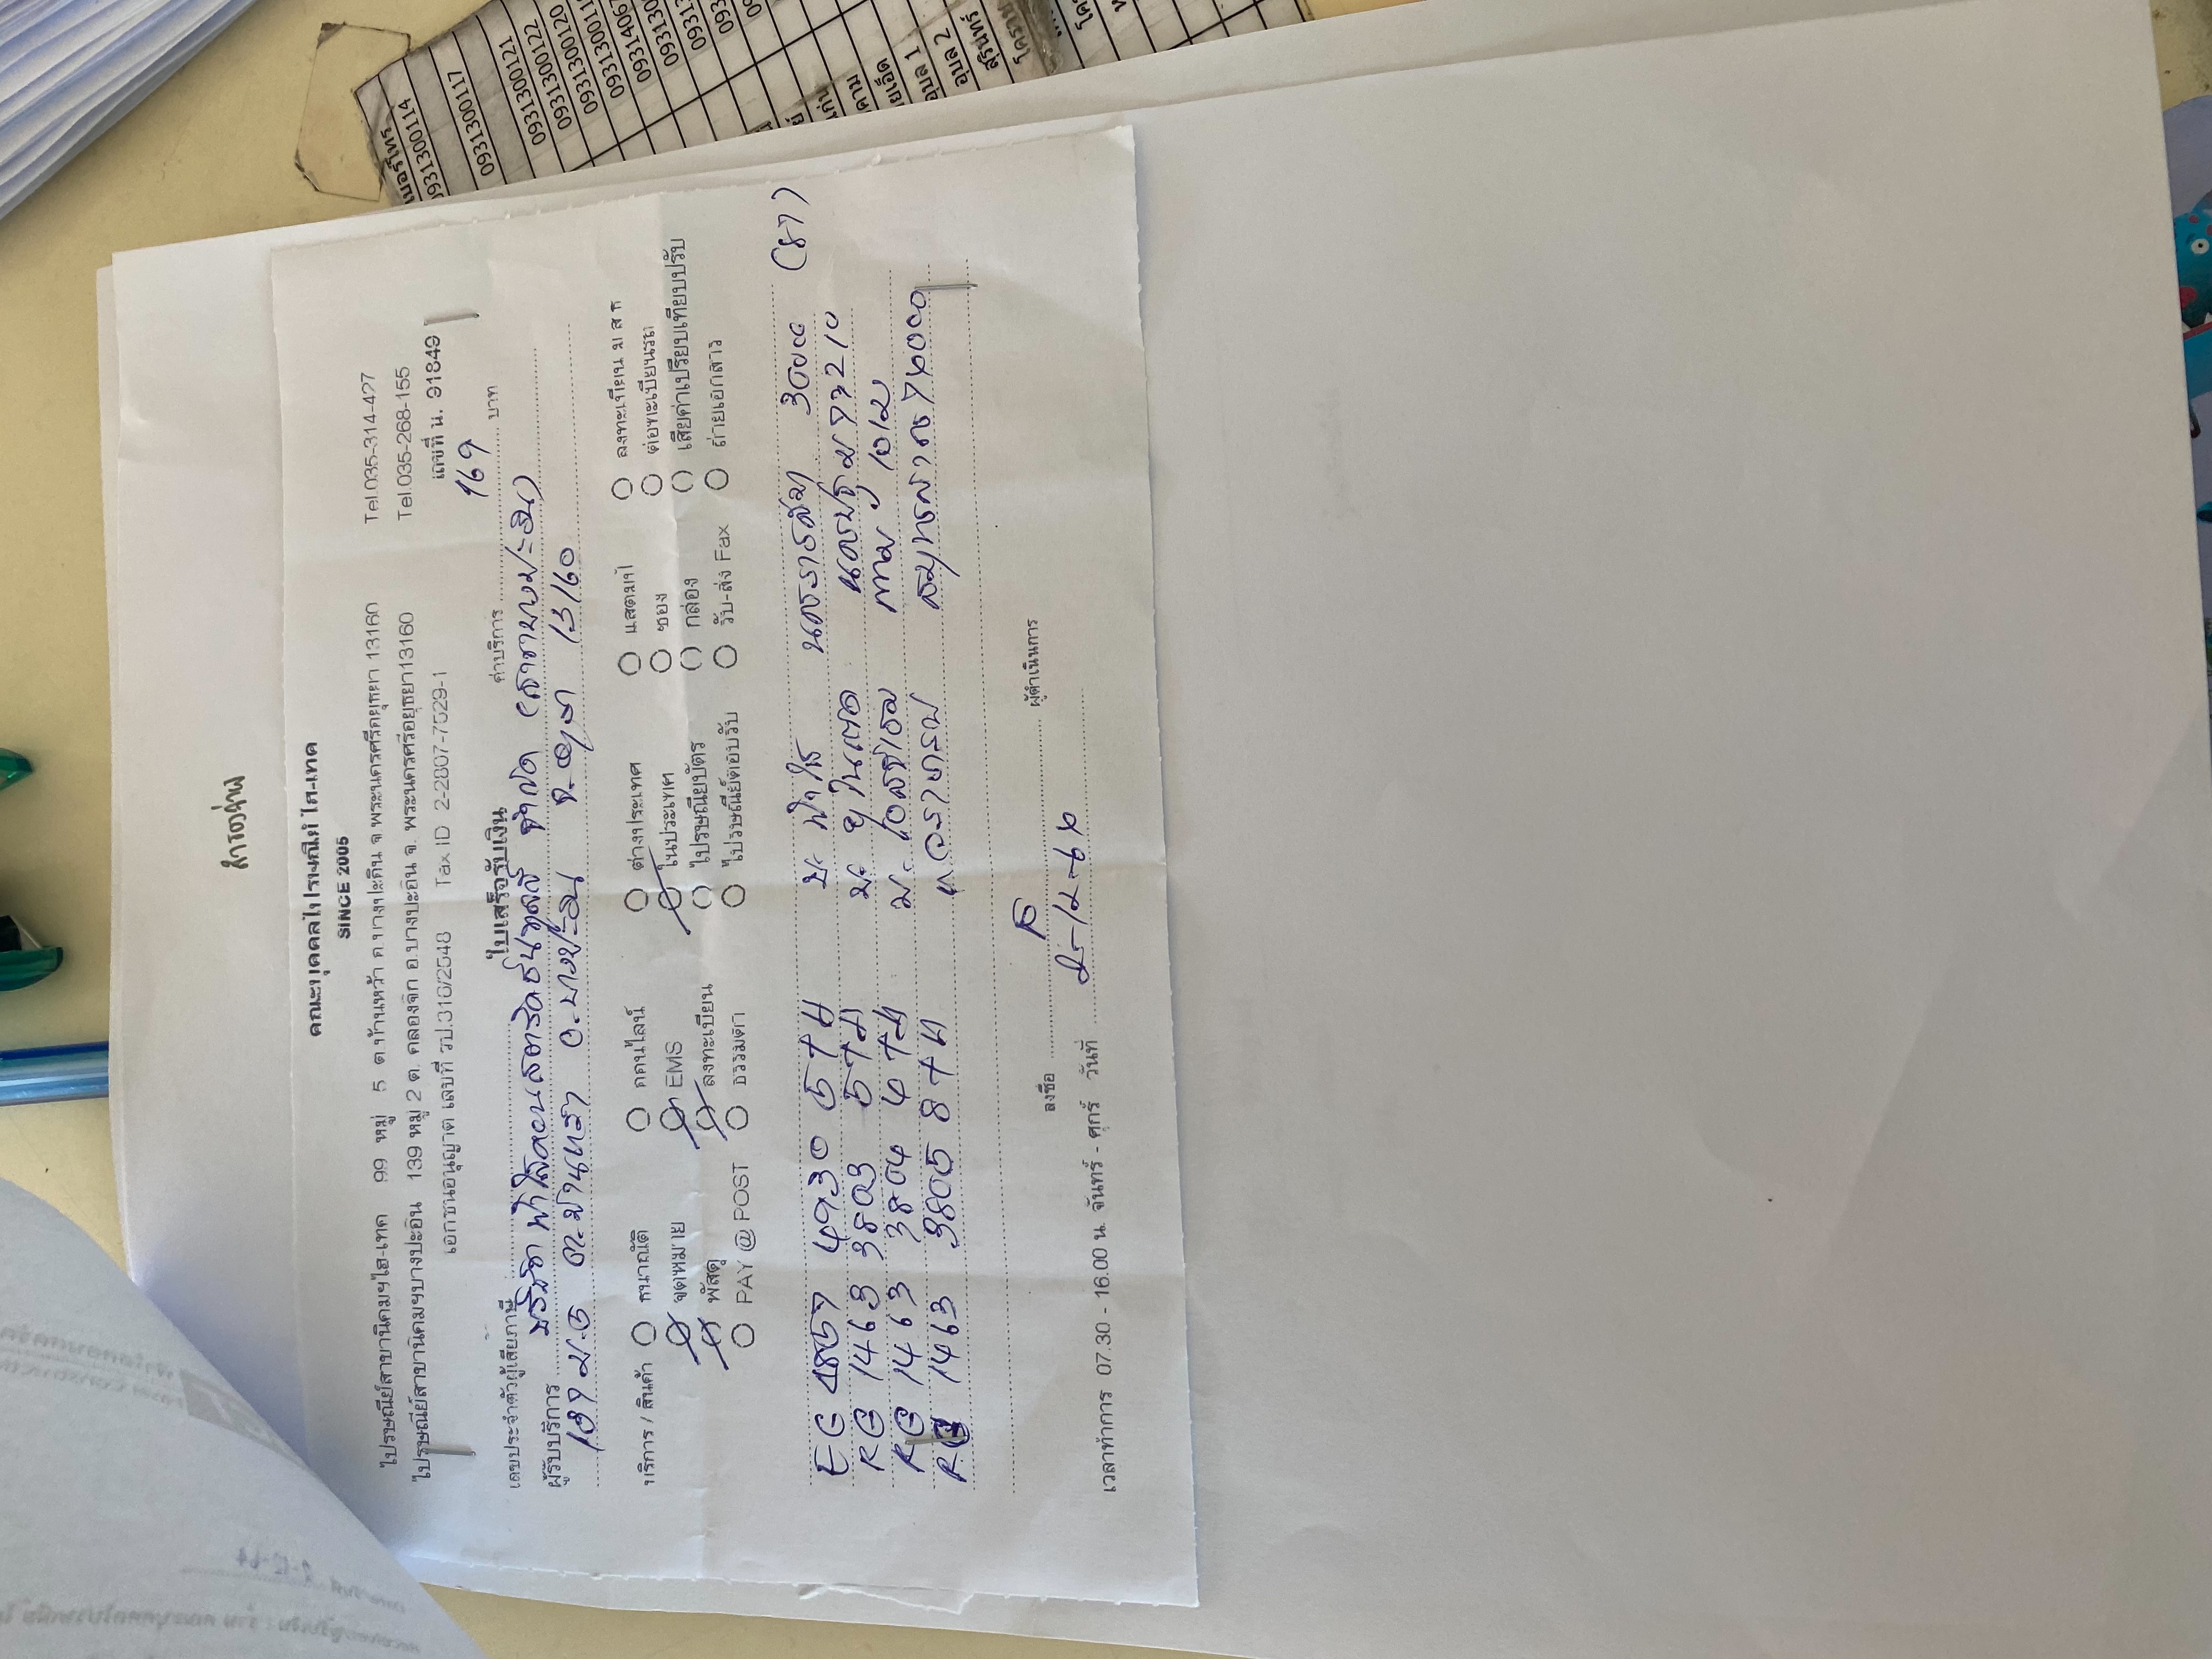 สำรองจ่าย
คณะบุคคลไปรษณีย์ ไฮ-เทค
SINCE 2005
ไปรษณีย์สาขานิคมฯไฮ-เทค 99 หมู่ 5 ต.บ้านหว้า อ.บางปะอิน จ.พระนครศรีอยุธยา 13160 Tel.035-314-427
ไปรษณีย์สาขานิคมฯบางปะอิน 139 หมู่ 2 ต. คลองจิก อ.บางปะอิน จ. พระนครศรีอยุธยา13160 Tel.035-268-155
เอกชนอนุญาต เลขที่ รป.310/2548 Tax ID 2-2807-7529-1 เลขที่ น. 91849
ใบเสร็จรับเงิน ค่าบริการ 169 บาท
เลขประจำตัวผู้เสียภาษี
ผู้รับบริการ บริษัท ฟ้าใสคอนสตรัคชั่นทูลส์ จำกัด (สาขาบางปะอิน)
137 ม.5 ต.บ้านหว้า อ.บางปะอิน จ.อยุธยา 13160
บริการ / สินค้า ธนาณัติ ออนไลน์ ต่างประเทศ แสตมป์ ลงทะเบียน ม ส ธ
จดหมาย EMS ในประเทศ ซอง ต่อทะเบียนรถ
พัสดุ ลงทะเบียน ไปรษณียบัตร กล่อง เสียค่าเปรียบเทียบปรับ
PAY @ POST ธรรมดา ไปรษณีย์ตอบรับ รับ-ส่ง Fax ถ่ายเอกสาร
EG 4857 4930 5 TH บ. ฟ้าใส นครราชสีมา 30000 (87)
RG 1463 3803 5 TH บ. นครปฐม 73210
RG 1463 3804 4 TH บ.
RG 1463 3805 8 TH สมุทรสาคร 74000
ลงชื่อ ผู้ดำเนินการ
เวลาทำการ 07.30 - 16.00 น. จันทร์ - ศุกร์ วันที่ 2-12-64
เบอร์โทร
0931300114
0931300117
0931300121
0931300122
0931300120
อุบล 1
อุบล 2
สุรินทร์